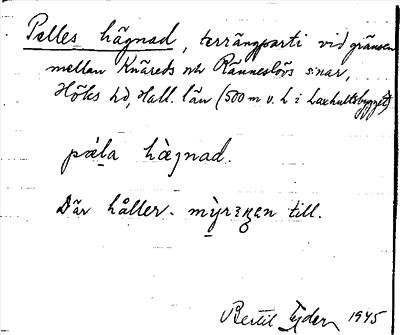 Pelles hägnad, terrängparti vid gränsen
mellan Knäreds och Ränneslövs s:nar,
Höks hd, Hall. län (500 m v. L i Laxhultsbygget)
pæ̀la hàgnad.
Där håller mỳrɜŋan till.
Bertil Ejder 1945